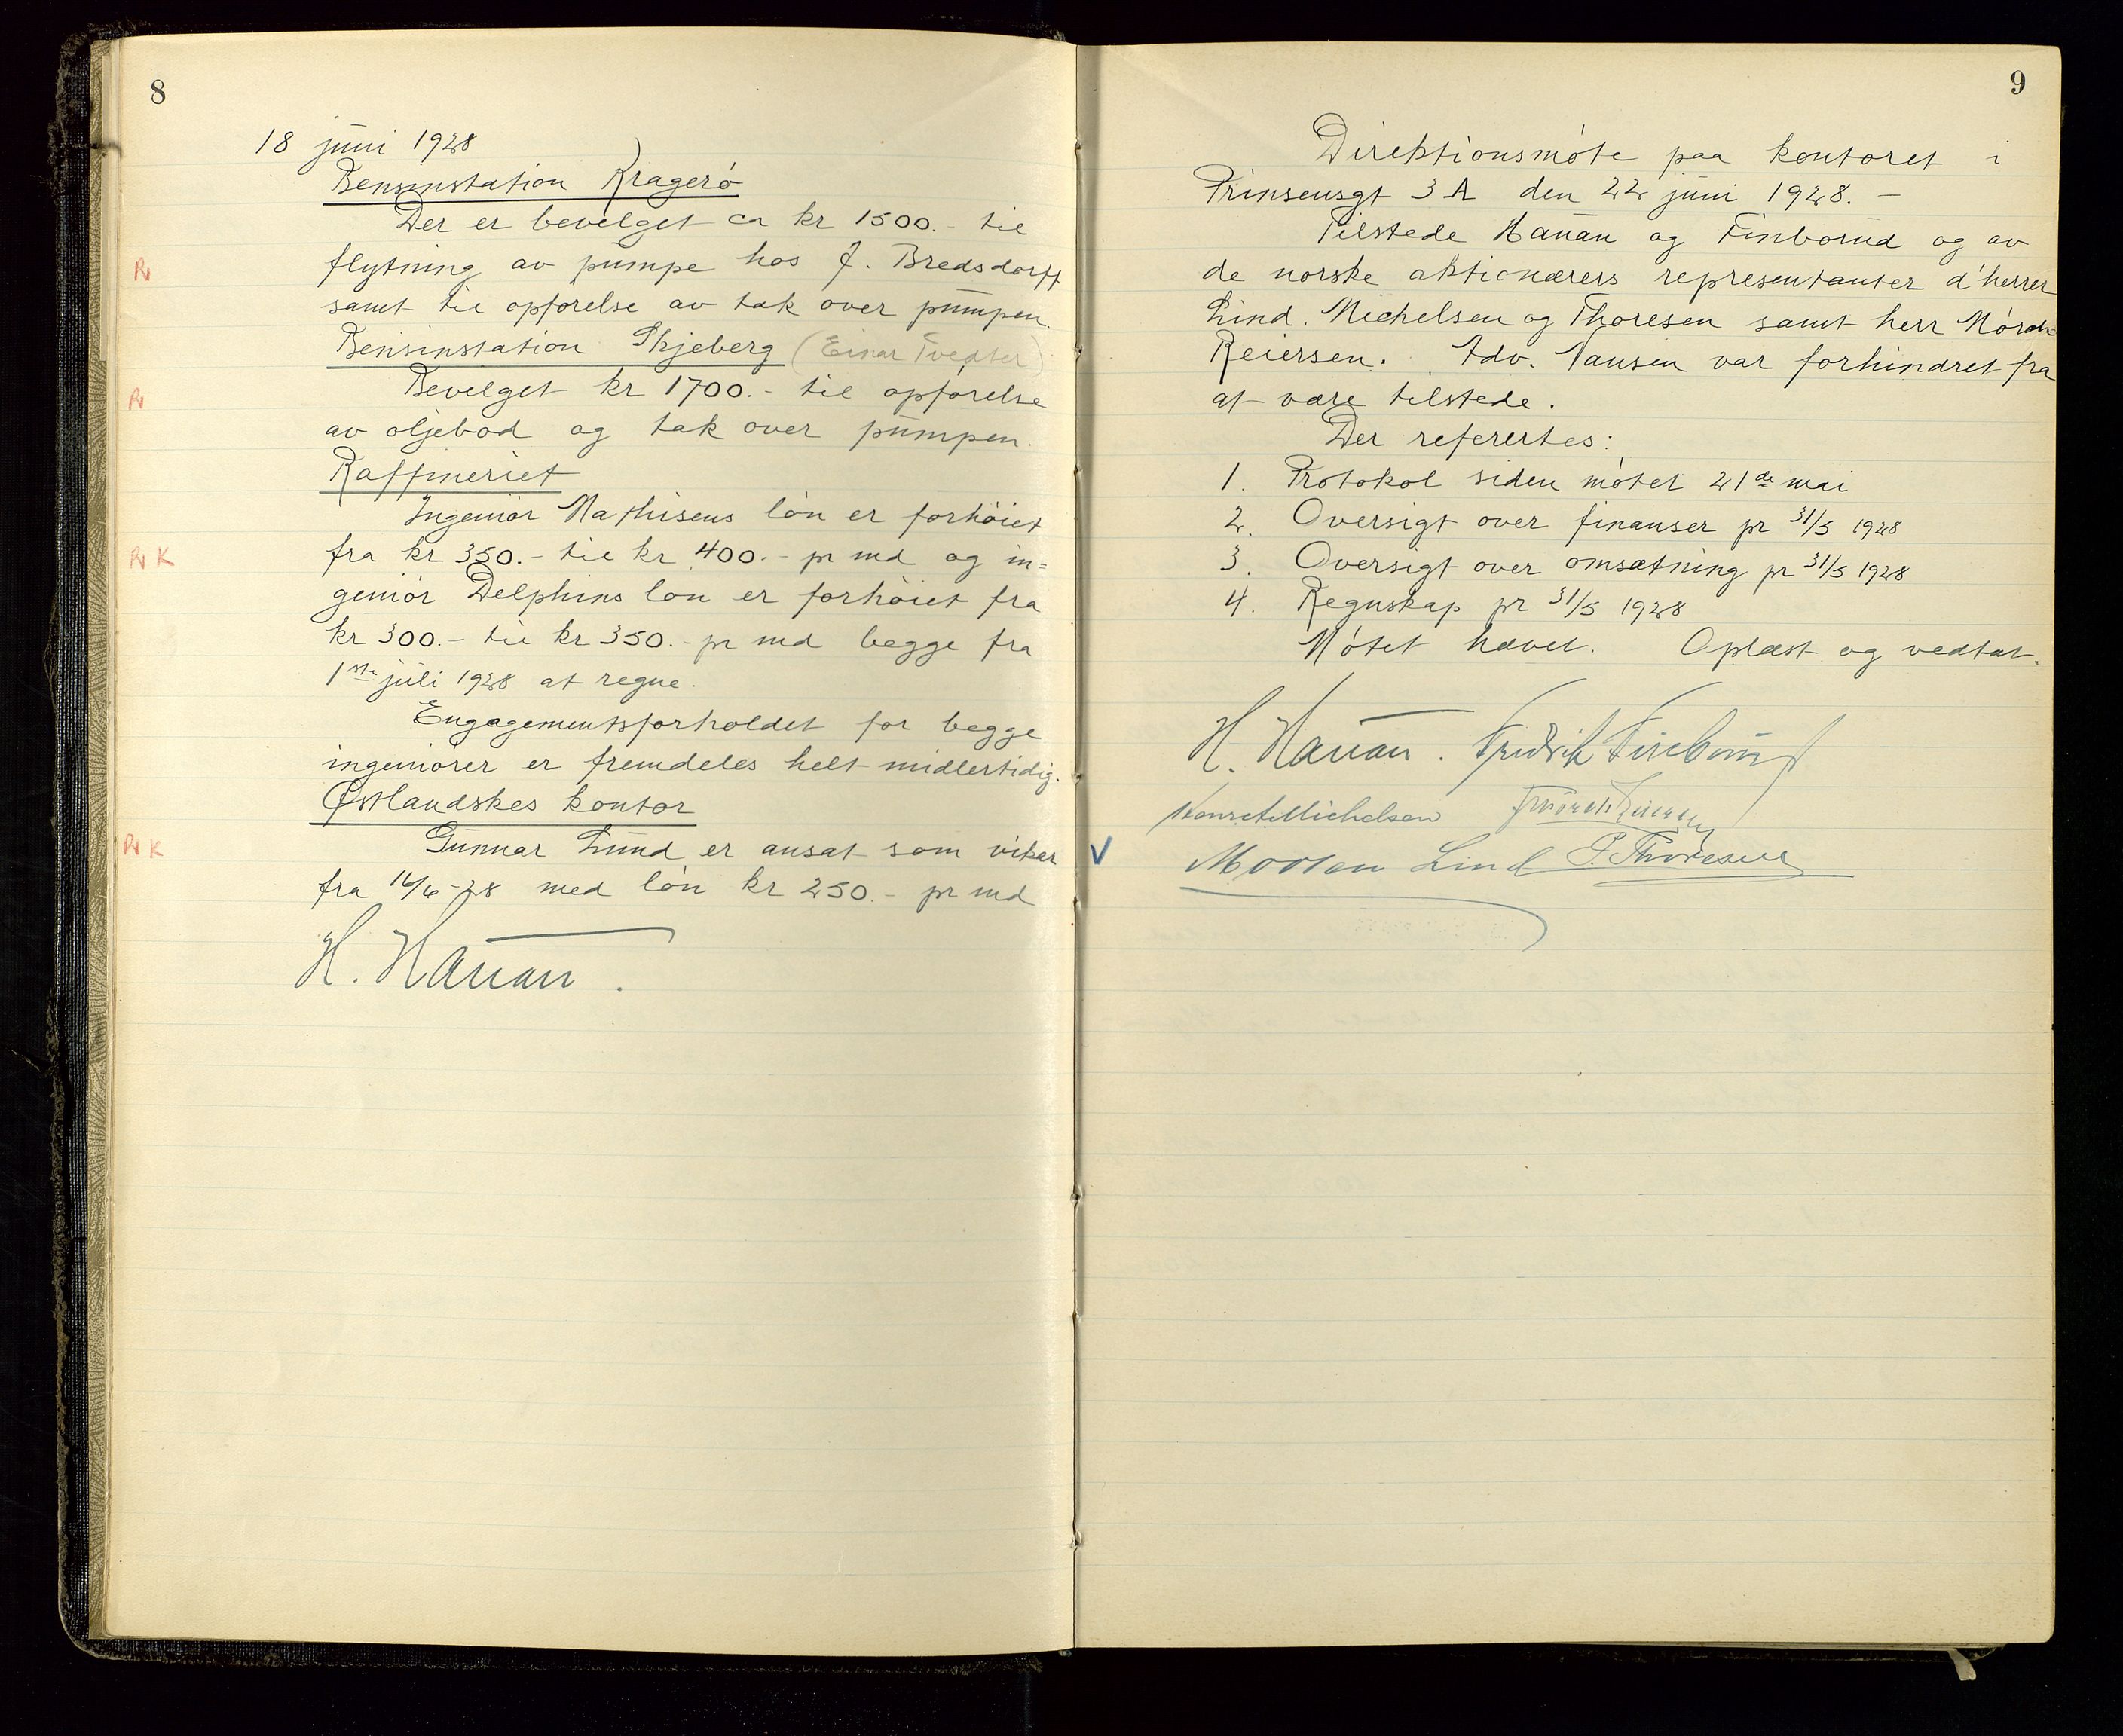 8
18 juni 1928
Bensinstation Kragerø
Der er bevilget ca kr 1500.- til
R flytning av pumpe hos J. Bredsdorff
samt til opførelse av tak over pumpen.
Bensinstation Skjeberg (Einar Tvedter)
R Bevilget kr 1700.- til opførelse
av oljebod og tak over pumpen.
Raffineriet
Ingeniør Mathisens løn er forhøiet
R K fra kr 350.- til kr 400.- pr md og in=
geniør Delphins løn er forhøiet fra
kr 300.- til kr 350.- pr md begge fra
1ste juli 1928 at regne.
Engagementsforholdet for begge
ingeniører er fremdeles helt midlertidig.
Østlandskes kontor
R K Gunnar Lund er ansat som vikar
fra 14/6-28 med løn kr 250.- pr md
H. Hauan.
9
Direktionsmøte paa kontoret i
Prinsensgt 3 A den 22 juni 1928.-
Tilstede Hauan og Finborud og av
de norske aktionærers representanter d'herrer
Lind. Michelsen og Thoresen samt herr Mørch
Reiersen. Adv. Nansen var forhindret fra
at være tilstede.
Der refertes:
1. Protokol siden møtet 21de mai
2. Oversigt over finanser pr 31/5 1928
3. Oversigt over omsætning pr 31/5 1928
4. Regnskap pr 31/5 1928
Møtet hævet. Oplæst og vedtat.
H. Hauan. Fredrik Finborud
Michelsen
V Morten Lind P. Thoresen